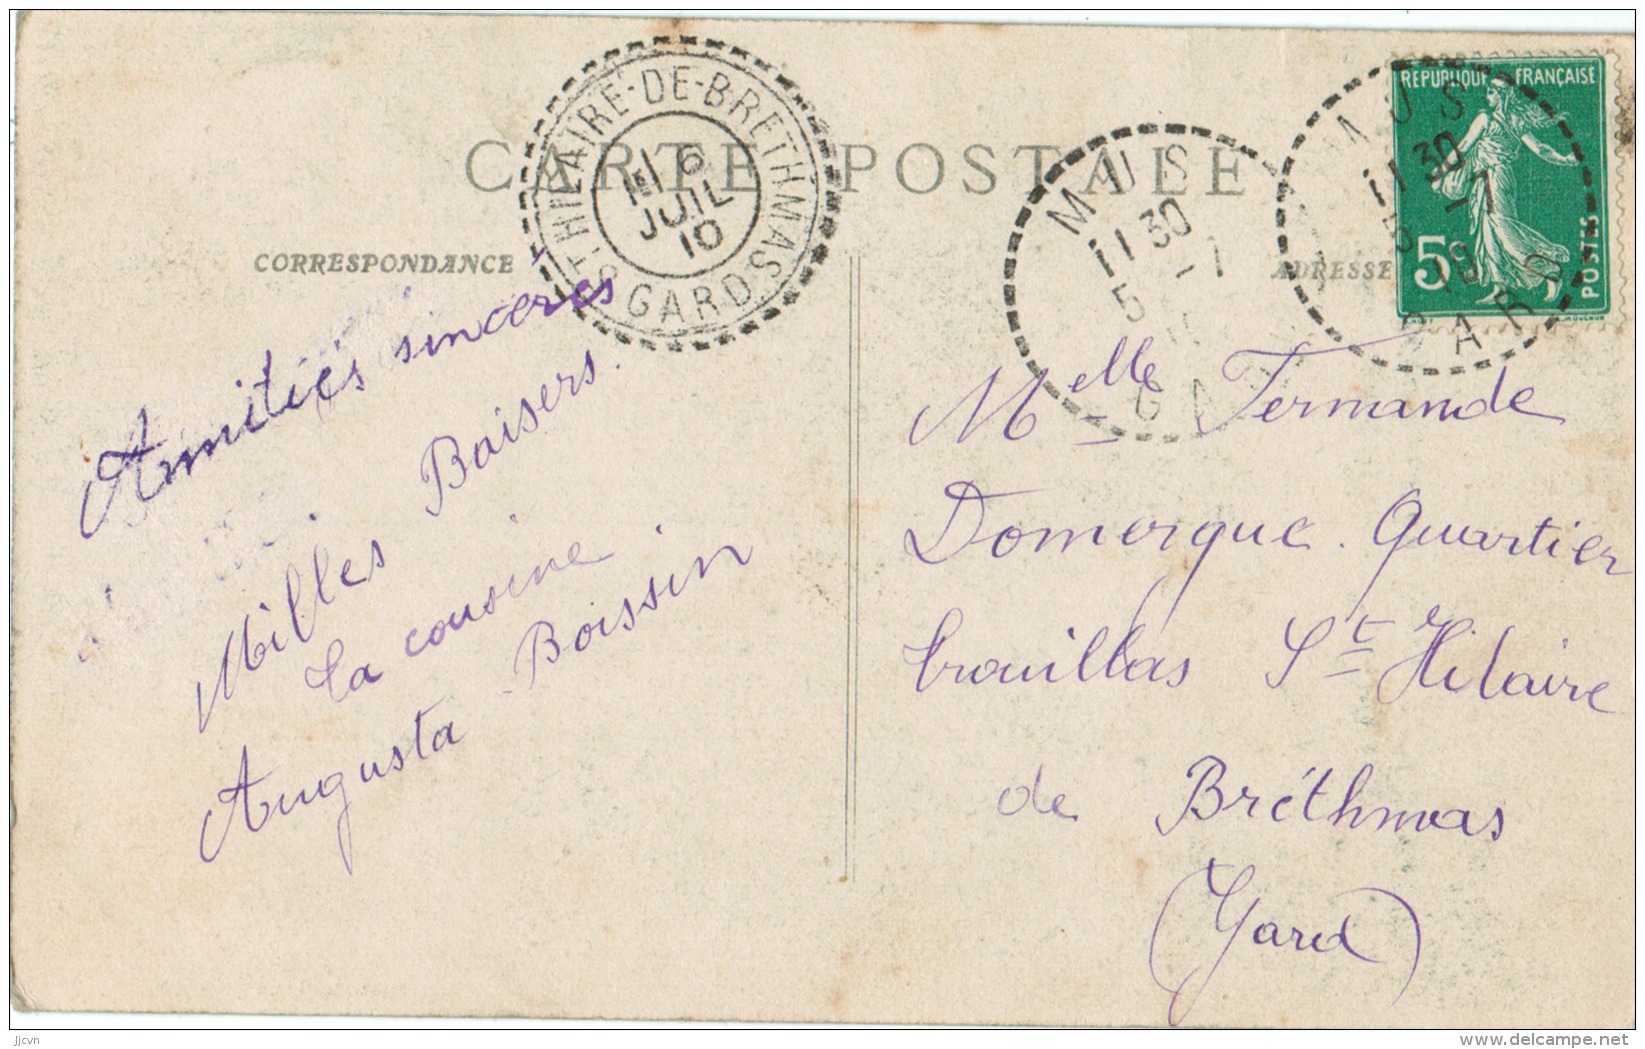 CARTE POSTALE
CORRESPONDANCE
ADRESSE
ST HILAIRE-DE-BRETHMAS
GARD
6
JUIL
10
MUS
11 30
5
GARD
MUS
30
GARD
RÉPUBLIQUE FRANÇAISE
5c
POSTES
Amitiés sincères
Milles Baisers.
ta cousine
Augusta Boissin
Melle Fernande
Domergue. Quartier
trouillas St Hilaire
de Bréthmas
(Gard)
jjcvn
delcampe.net